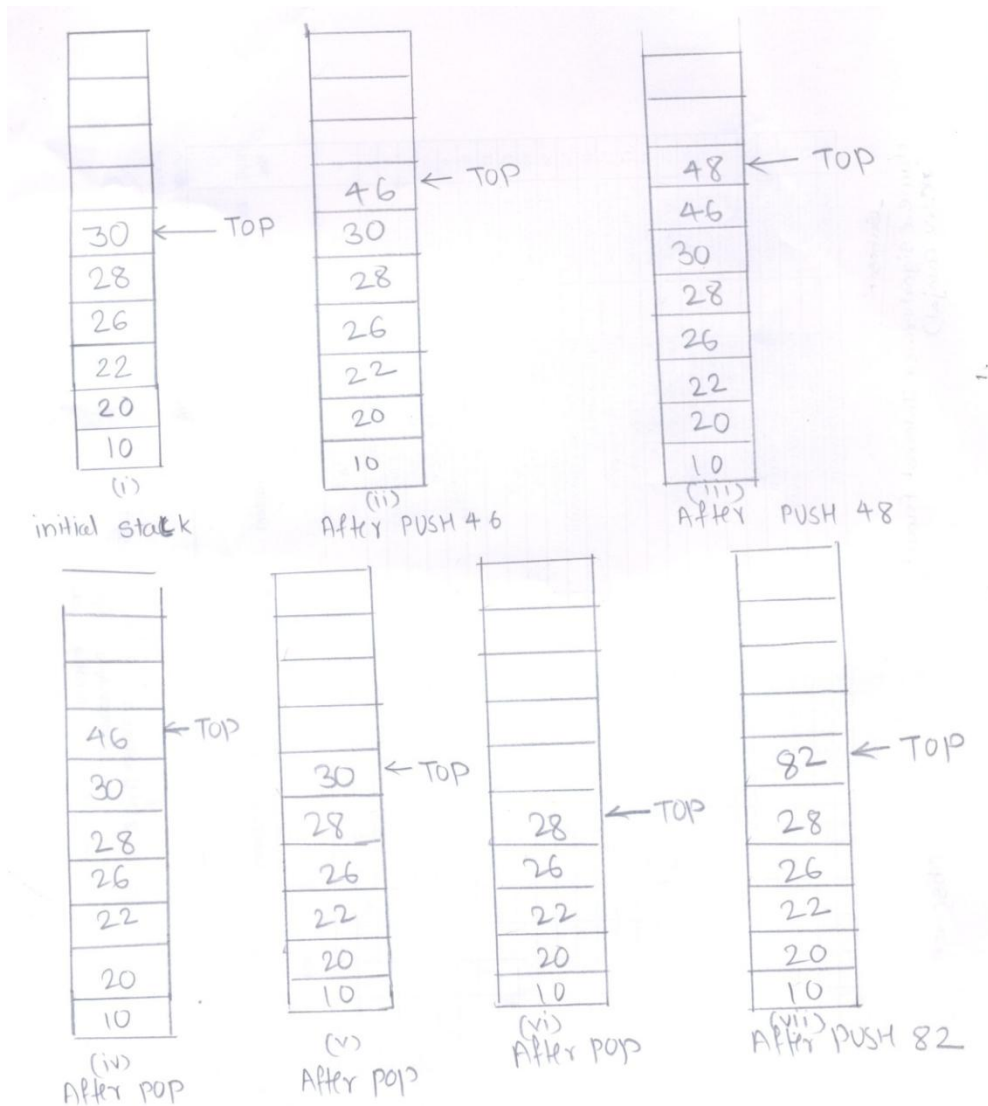 30 ← TOP
28
26
22
20
10
(i)
initial stack
46 ← TOP
30
28
26
22
20
10
(ii)
After PUSH 46
48 ← TOP
46
30
28
26
22
20
10
(iii)
After PUSH 48
46 ← TOP
30
28
26
22
20
10
(iv)
After pop
30 ← TOP
28
26
22
20
10
(v)
After pop
28 ← TOP
26
22
20
10
(vi)
After pop
82 ← TOP
28
26
22
20
10
(vii)
After PUSH 82